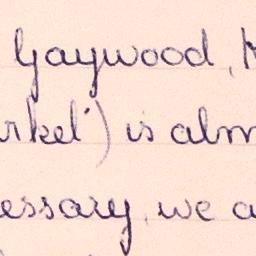 Gaywood,
rket') is alm
essary, we a